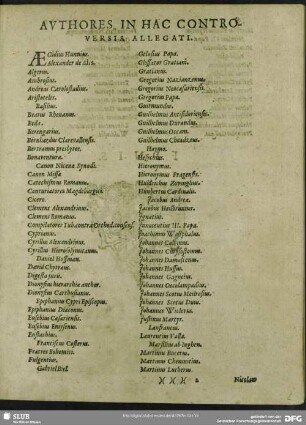 AVTHORES, IN HAC CONTRO-
VERSIA ALLEGATI.
ÆGidius Hunnius.
Alexander de Ales.
Algerus.
Ambrosius.
Andreas Carolostadius.
Aristoteles.
Basilius.
Beatus Rhenanus.
Beda.
Berengarius.
Bernhardus Clarevallensis.
Bertramus presbyter.
Bonaventura.
Canon Nicænæ Synodi.
Canon Missæ
Catechismus Romanus.
Centuriatores Magdeburgici.
Cicero.
Clemens Alexandrinus.
Clemens Romanus.
Cyprianus.
Cyrillus Alexandrinus.
Cyrillus Hierosolymitanus.
Daniel Hofman.
David Chytræus.
Digesta juris.
Dionysius hierarchiæ author.
Dionysius Carthusianus.
Epiphanius Cypri Episcopus.
Epiphanius Diaconus.
Eusebius Cæsariensis.
Eusebius Emisenus.
Eustachius.
Franciscus Costerus.
Fulgentius.
Gabriel Biel.
Gelasius Papa.
Glossator Gratiani.
Gratianus.
Gregorius Nazianzenus.
Gregorius Papa.
Guitmundus.
Guilhelmus Durandus.
Guilhelmus Occam.
Haymo.
Hesychius.
Hieronymus.
Hieronymus Pragensis.
Huldrichus Zvvinglius.
Humbertus Cardinalis.
Jacobus Andreæ.
Jacobus Heilbrunner.
Ignatius.
Innocentius III. Papa.
Joachimus Westphalus.
Johannes Calvinus.
Johannes Chrysostomus.
Johannes Damascenus.
Johannes Hussus.
Johannes Gagneius.
Johannes Oecolampadius.
Johannes Scotus Duns.
Johannes Wiclevus.
Justinus Martyr.
Lanfrancus.
Laurentius Valla.
Marsilius ab Inghen.
Martinus Bucerus.
Martinus Chemnitius.
Martinus Lutherus.
Nicolaus
SLUB